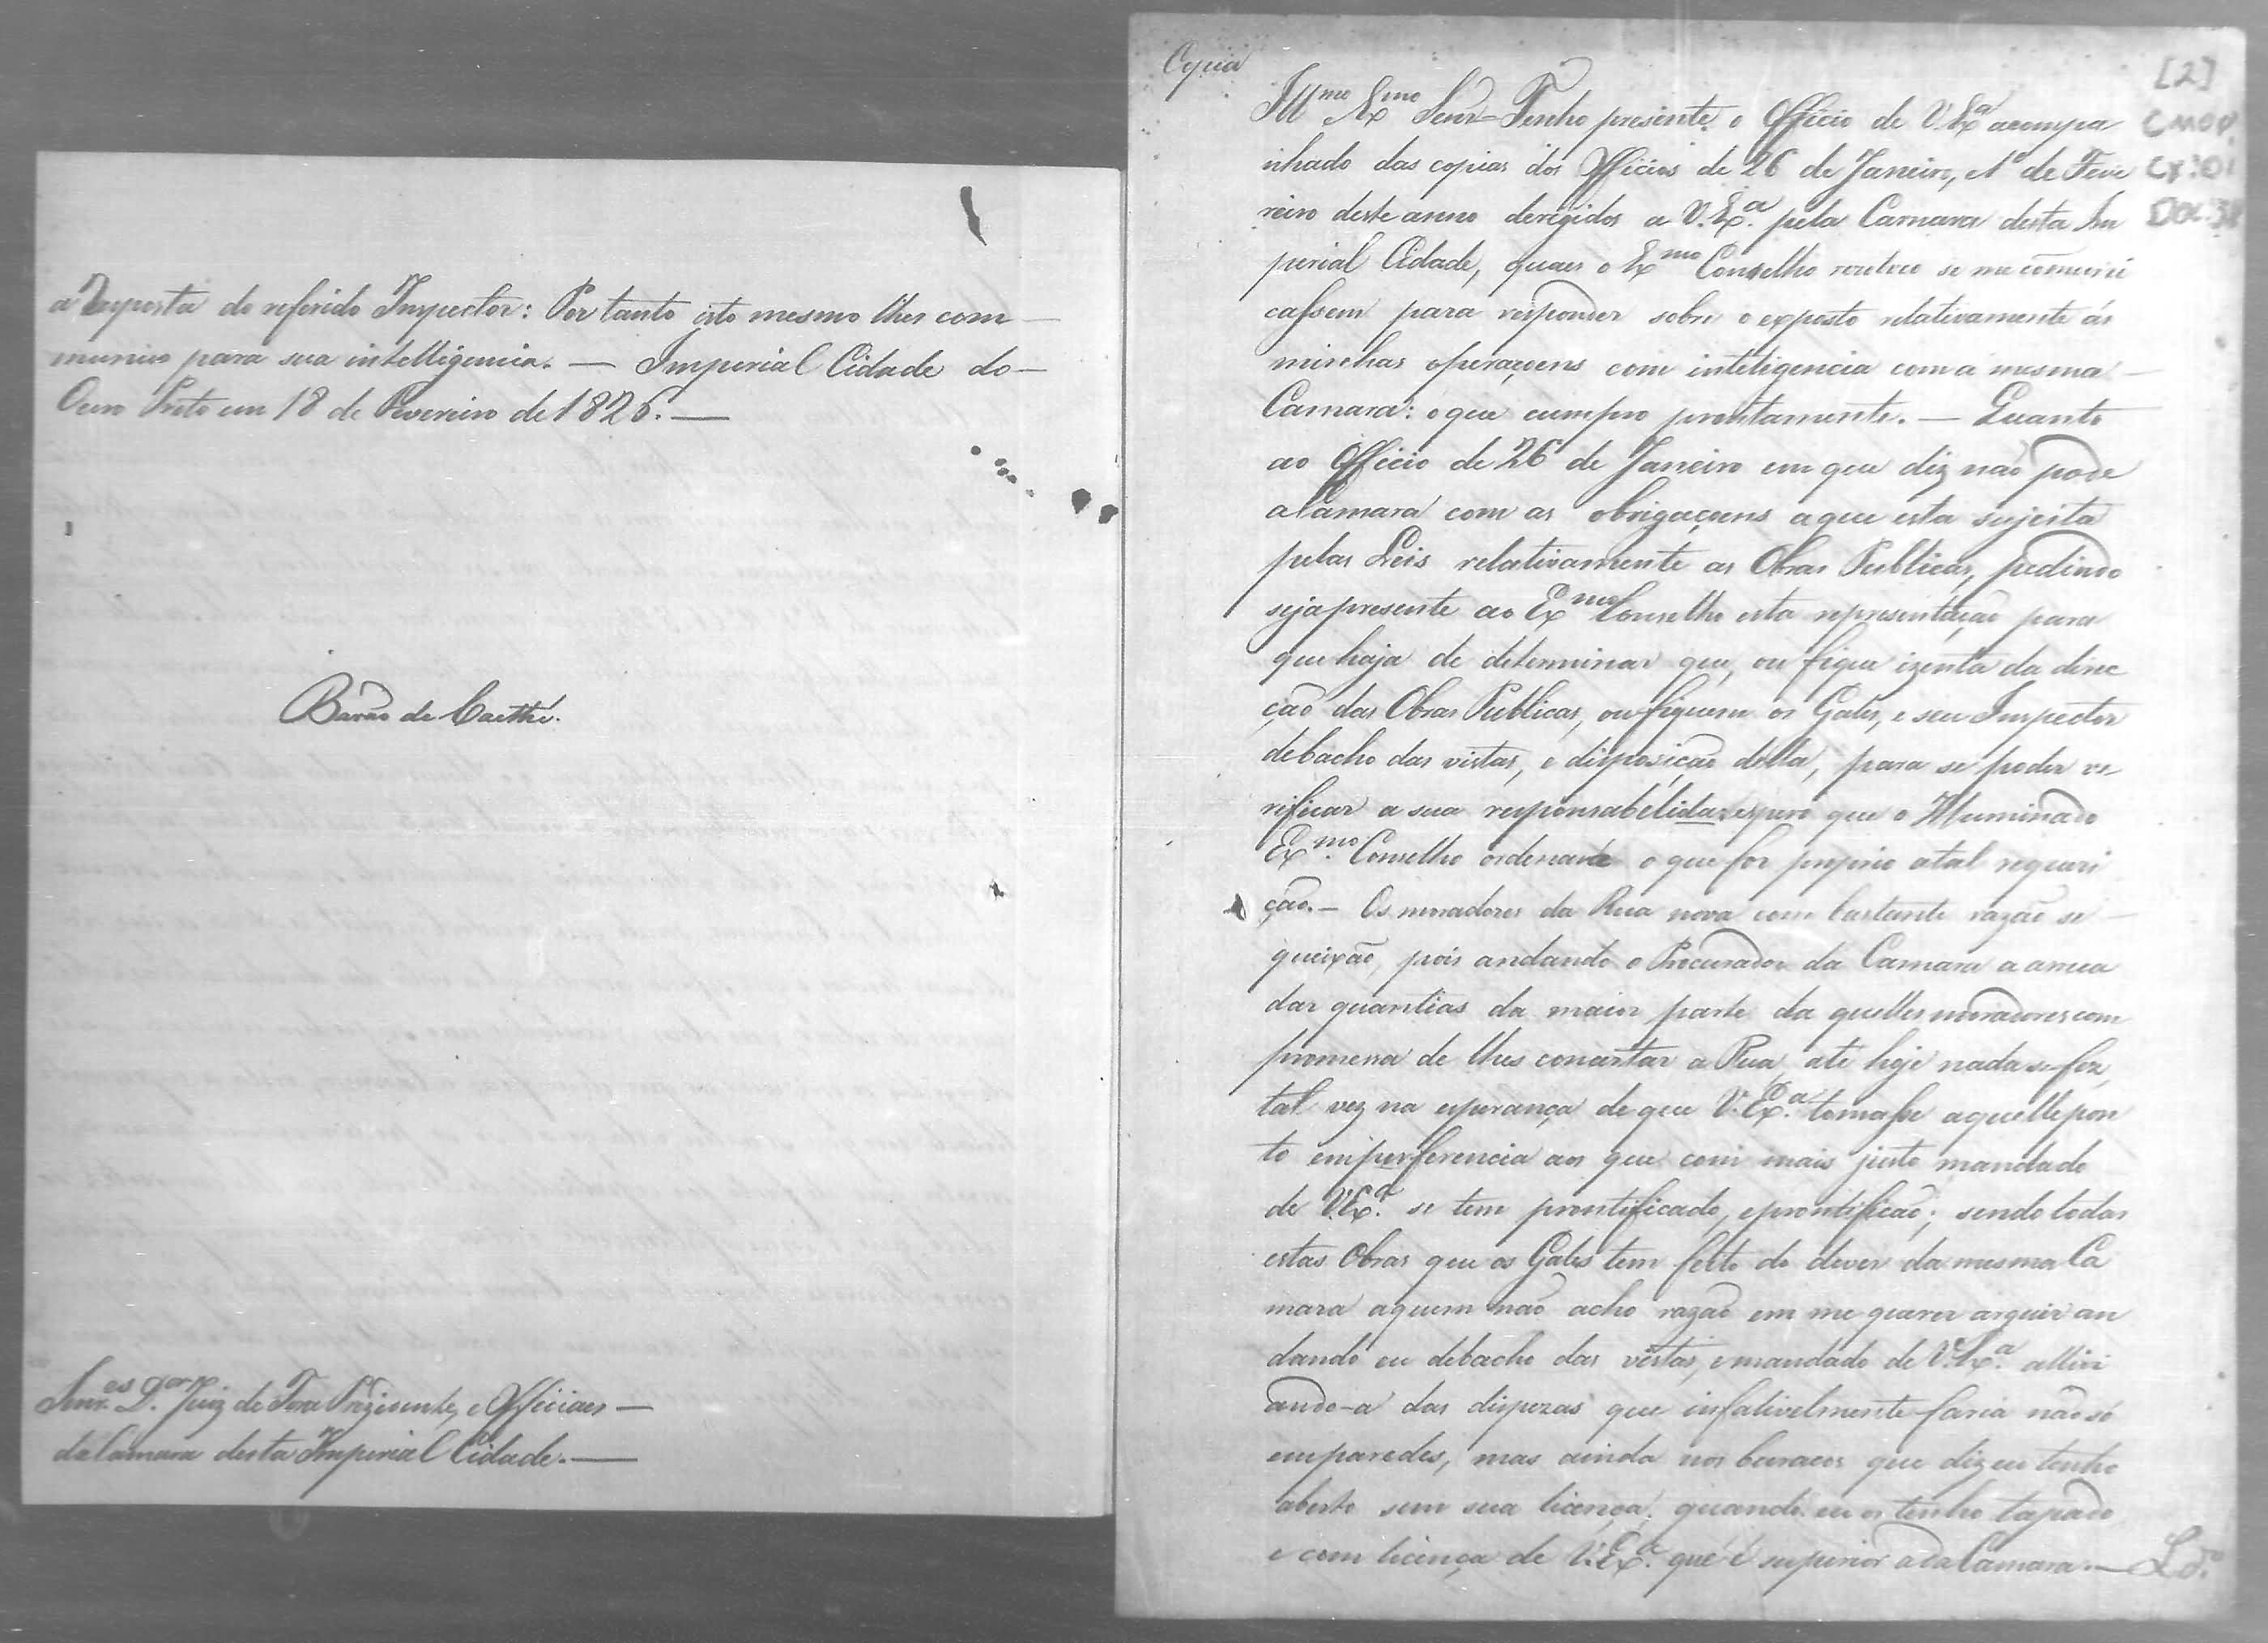 a Resposta do referido Inspector: Por tanto isto mesmo lhes com
munico para sua intelligencia. — Imperial Cidade do —
Ouro Preto em 18 de Fevereiro de 1826. —
Barão de Caethé.
Snr.es D.or Juiz de Fora Prezisente, e Officiaes —
da Camara desta Imperial Cidade. —
Copia
[2]
CMOP
CX:01
DOC:38
Ill.mo Ex.mo Senr. Tenho presente o Officio de V. Ex.a acompa
nhado das copias dos Officios de 26 de Janeiro, e 1º de Feve
reiro deste anno derigidos a V. Ex.a pela Camara desta Im
perial Cidade, quaes o Ex.mo Conselho rezolveo se me comuni
cassem para responder sobre o exposto relativamente ás
minhas operaçoens com inteligencia com a mesma —
Camara: o que cumpro prontamente. — Quanto
ao Officio de 26 de Janeiro em que diz não pode
a Camara com as obrigaçoens a que esta sujeita
pelas Leis relativamente as Obras Publicas, pedindo
seja presente ao Ex.mo Conselho esta representação para
que haja de determinar que, ou fique izenta da direc
ção das Obras Publicas, ou fiquem os Galés, e seu Inspector
debacho das vistas, e disposição della, para se poder ve
rificar a sua responsabelidade espero que o Illuminado
Ex.mo Conselho ordenará o que for proprio a tal requizi
ção. — Os moradores da Rua nova com bastante razão se
queixão, pois andando o Procurador da Camara a arreca
dar quantias da maior parte da quelles moradores com
promessa de lhes concertar a Rua, até hoje nada se fez,
tal vez na esperança de que V. Ex.a tomasse aquelle pon
to em perferencia aos que com mais justo mandado
de V. Ex.a se tem prontificado, e prontificão; sendo todas
estas Obras que os Galés tem feito do dever da mesma Ca
mara a quem não acho razão em me querer arguir an
dando eu debacho das vistas, e mandado de V. Ex.a allivi
ando-a das dispezas que infalivelmente faria não só
em paredes, mas ainda nos buracos que diz eu tenho
aberto sem sua licença, quando eu os tenho tapado
e com licença de V. Ex.a que é superior a da Camara. —